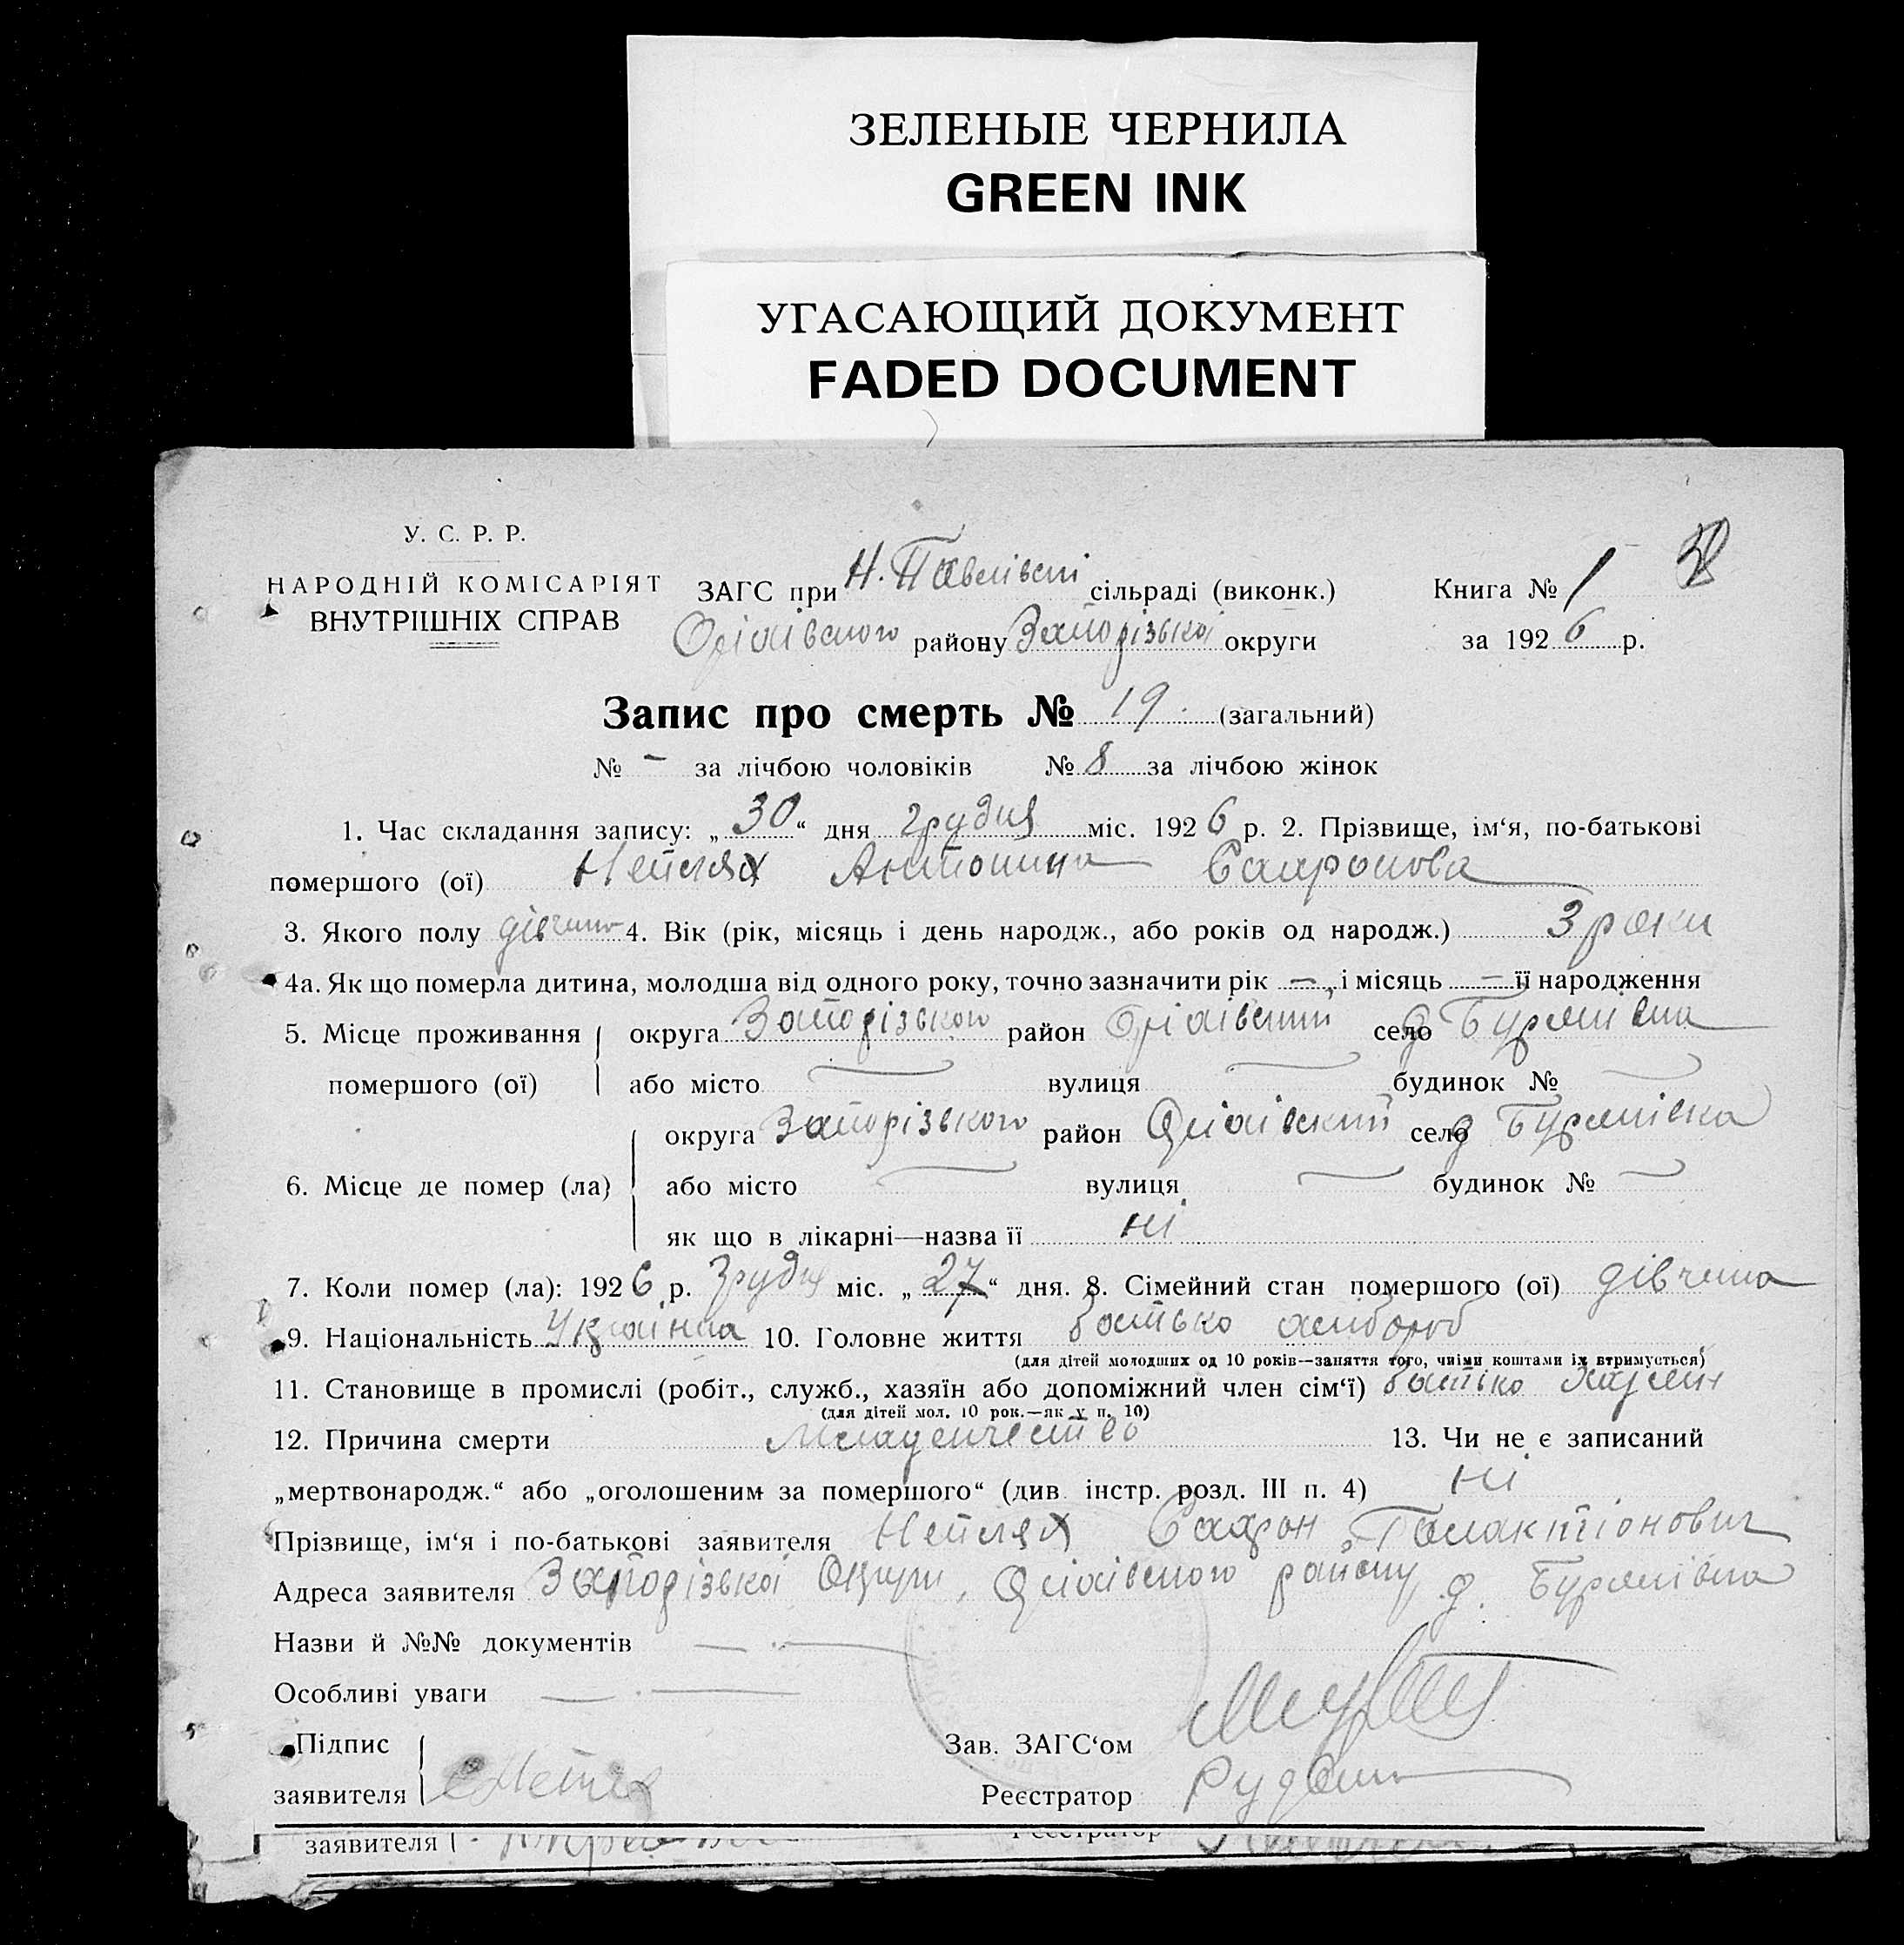 ЗЕЛЕНЫЕ ЧЕРНИЛА
GREEN INK
УГАСАЮЩИЙ ДОКУМЕНТ
FADED DOCUMENT
У. С. Р. Р.
НАРОДНІЙ КОМІСАРІЯТ
ВНУТРІШНІХ СПРАВ
ЗАГС при Н. Павлівсті сільраді (виконк.) Книга № 1
Оріхівського району Запорізької округи за 1926 р.
Запис про смерть № 19. (загальний)
№ - за лічбою чоловіків № 8 за лічбою жінок
1. Час складання запису: „30“ дня грудня міс. 1926 р. 2. Прізвище, ім‘я, по-батькові
помершого (ої) Неплях Антонина Сапронова
3. Якого полу дівчина 4. Вік (рік, місяць і день народж., або років од народж.) 3 роки
4а. Як що померла дитина, молодша від одного року, точно зазначити рік —, і місяць — її народження
5. Місце проживання округа Запорізького район Оріхівський село
помершого (ої) або місто вулиця будинок №
округа Запорізького район Оріхівський село
6. Місце де помер (ла) або місто вулиця будинок №
як що в лікарні—назва її ні
7. Коли помер (ла): 1926 р. Грудня міс. „27“ дня. 8. Сімейний стан помершого (ої) дівчина
9. Національність Українка 10. Головне життя батько хлібороб
(для дітей молодших од 10 років—заняття того, чиїми коштами їх втримується)
11. Становище в промислі (робіт., служб., хазяїн або допоміжний член сім‘ї) батько
(для дітей мол. 10 рок.—як у п. 10)
12. Причина смерти Младенчество 13. Чи не є записаний
„мертвонародж.“ або „оголошеним за помершого“ (див. інстр. розд. III п. 4) ні
Прізвище, ім‘я і по-батькові заявителя Неплях Сафрон Галактіонович
Адреса заявителя Запорізької Округи, Оріхівського району д.
Назви й №№ документів — . —
Особливі уваги — . —
Підпис
заявителя
Зав. ЗАГС‘ом
Реєстратор
заявителя Реєстратор